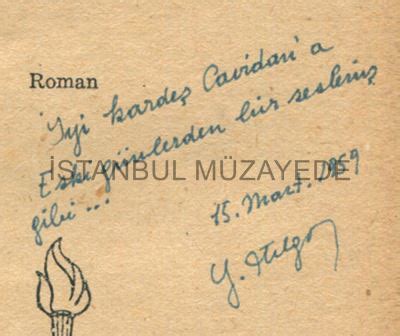 Roman
İyi kardeş Cavidan'a
Eski günlerden bir sesleniş
gibi...
İSTANBUL MÜZAYEDE
15. Mart. 1959